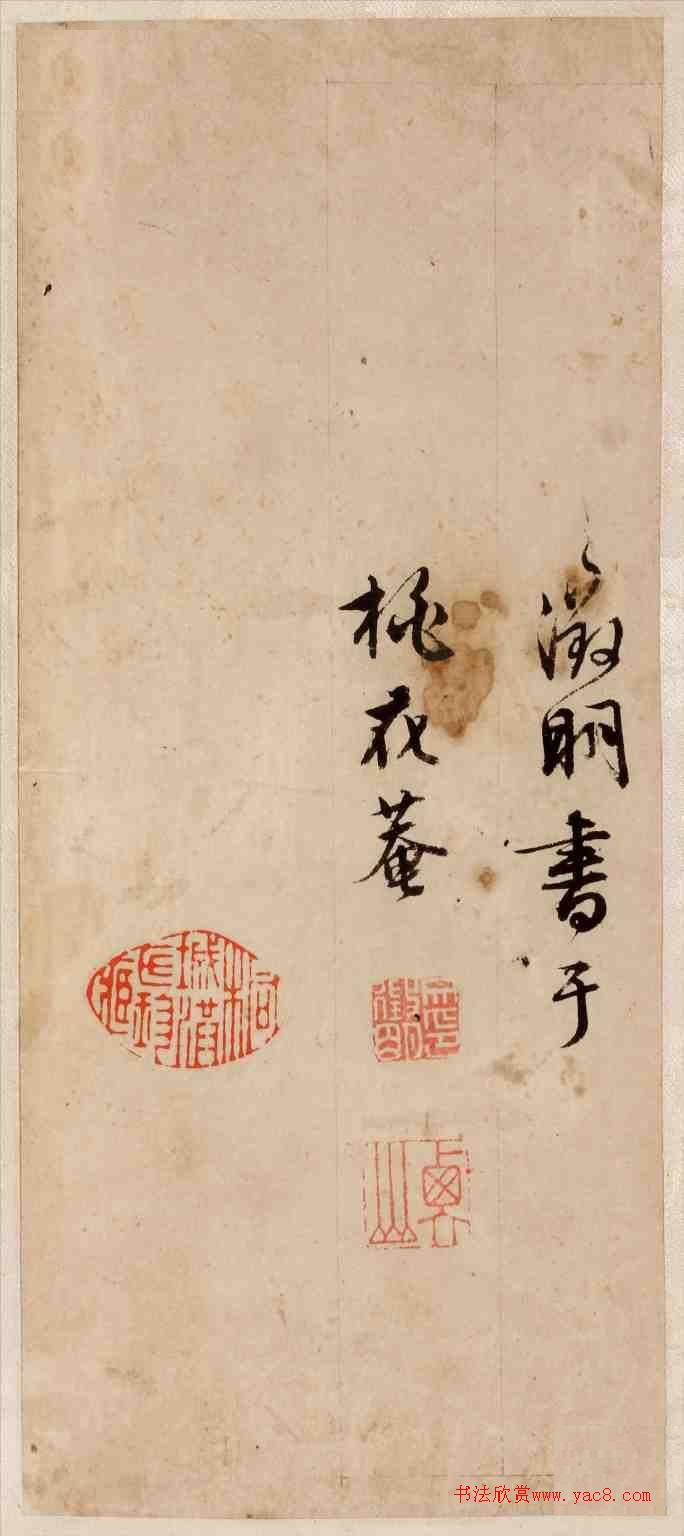 徵明書于
桃花菴
衡山
书法欣赏www.yac8.com